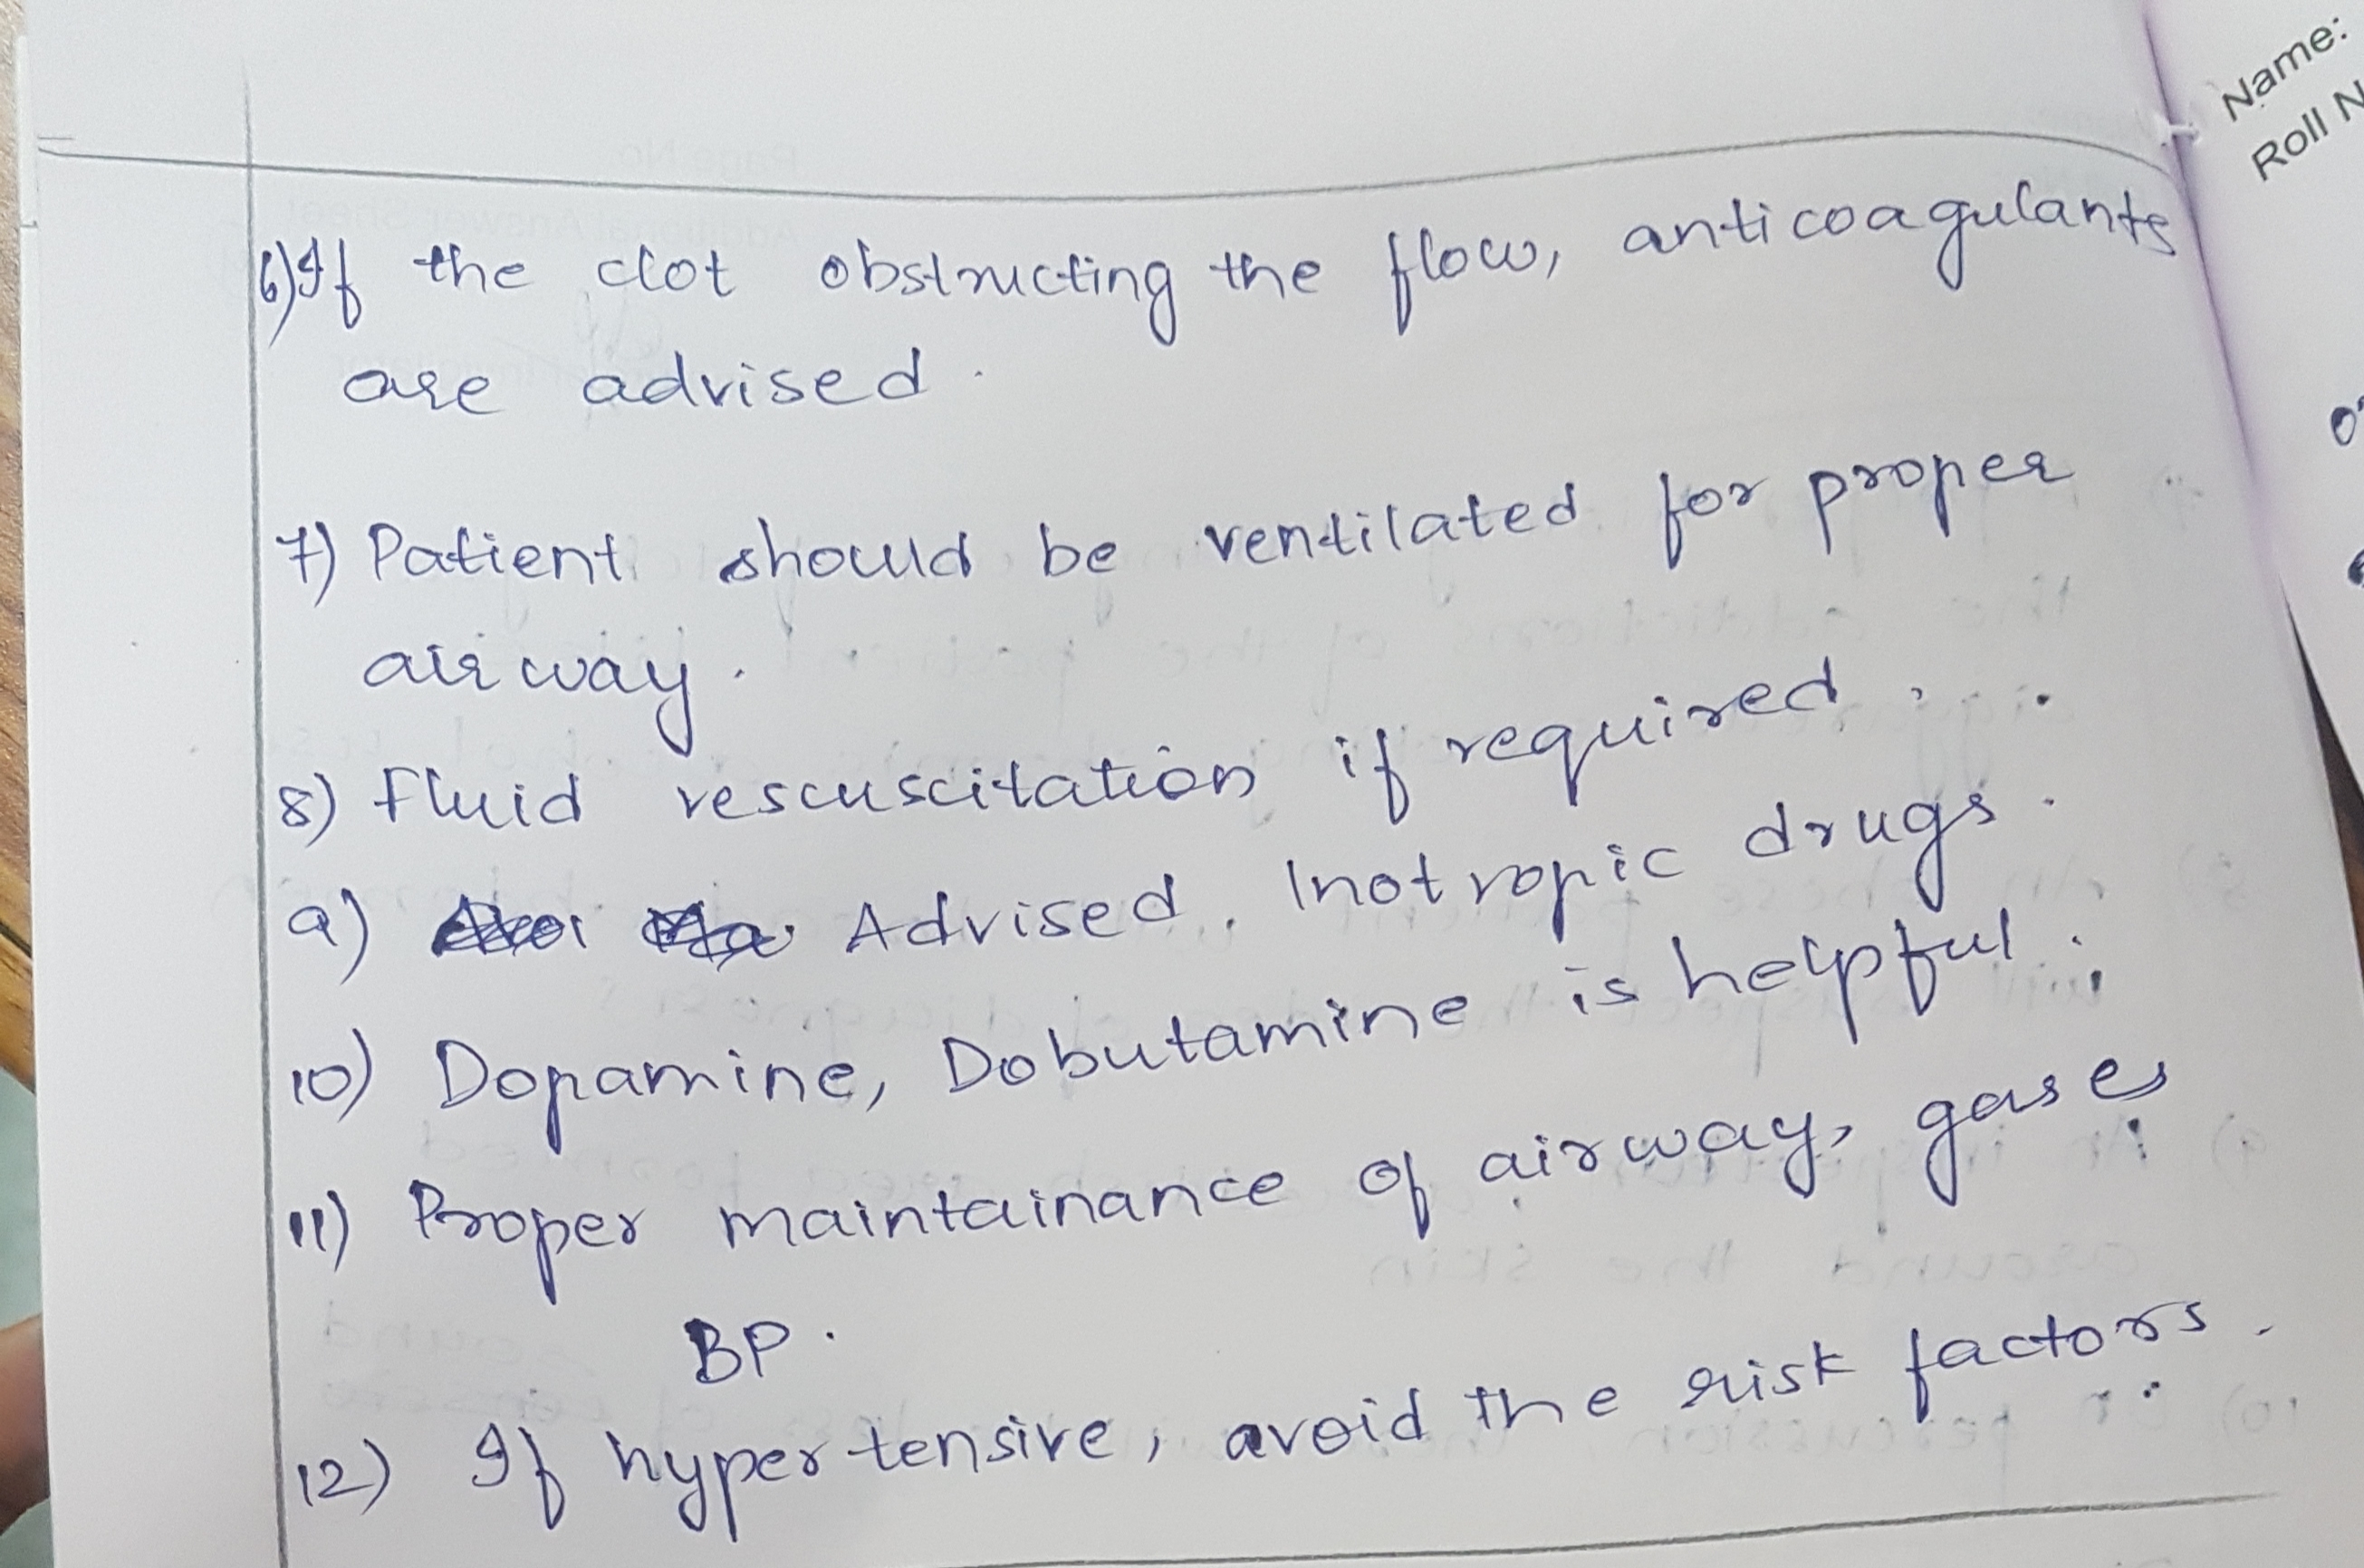 Name:
Roll N
6) If the clot obstructing the flow, anticoagulants
are advised.
7) Patient should be ventilated for proper
airway.
8) Fluid rescuscitation if required.
9) Advised. Inotropic drugs.
10) Dopamine, Dobutamine is helpful.
11) Proper maintainance of airway, gases
BP.
12) If hypertensive, avoid the risk factors.